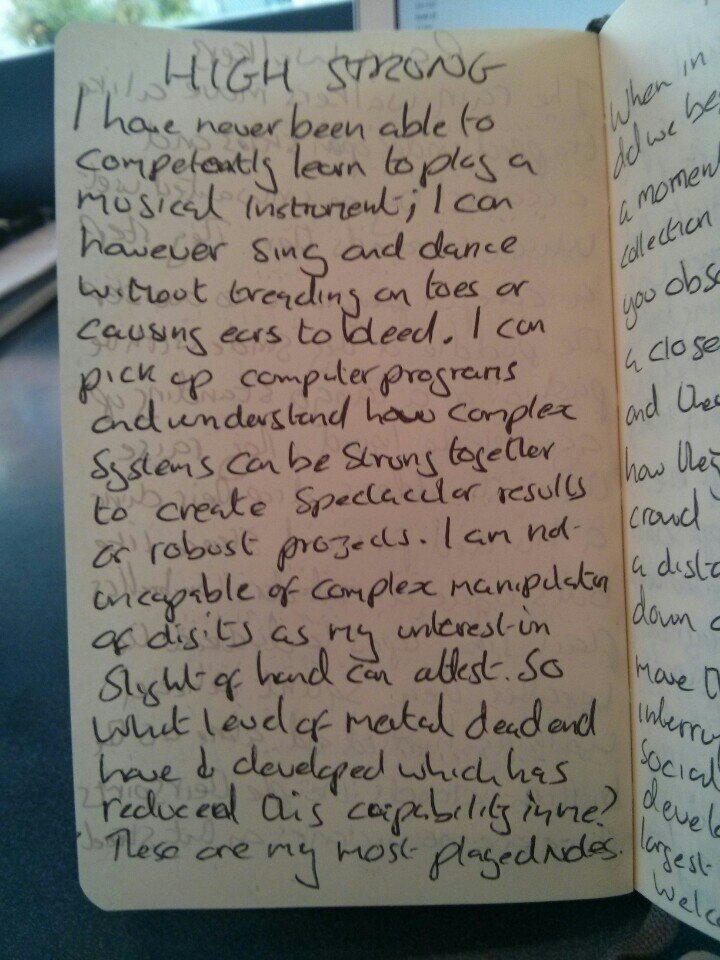 HIGH STRONG
I have never been able to
competently learn to play a
musical instrument; I can
however sing and dance
without treading on toes or
causing ears to bleed. I can
pick up computer programs
and understand how complex
systems can be strung together
to create spectacular results
or robust projects. I am not
uncapable of complex manipulation
of digits as my interest in
slight of hand can attest. So
what level of mental dead end
have I developed which has
reduced this capability in me?
These are my most played notes.
When in
did we
a moment
collection
you
a close
and
how they
crowd
a
down
move
social
largest